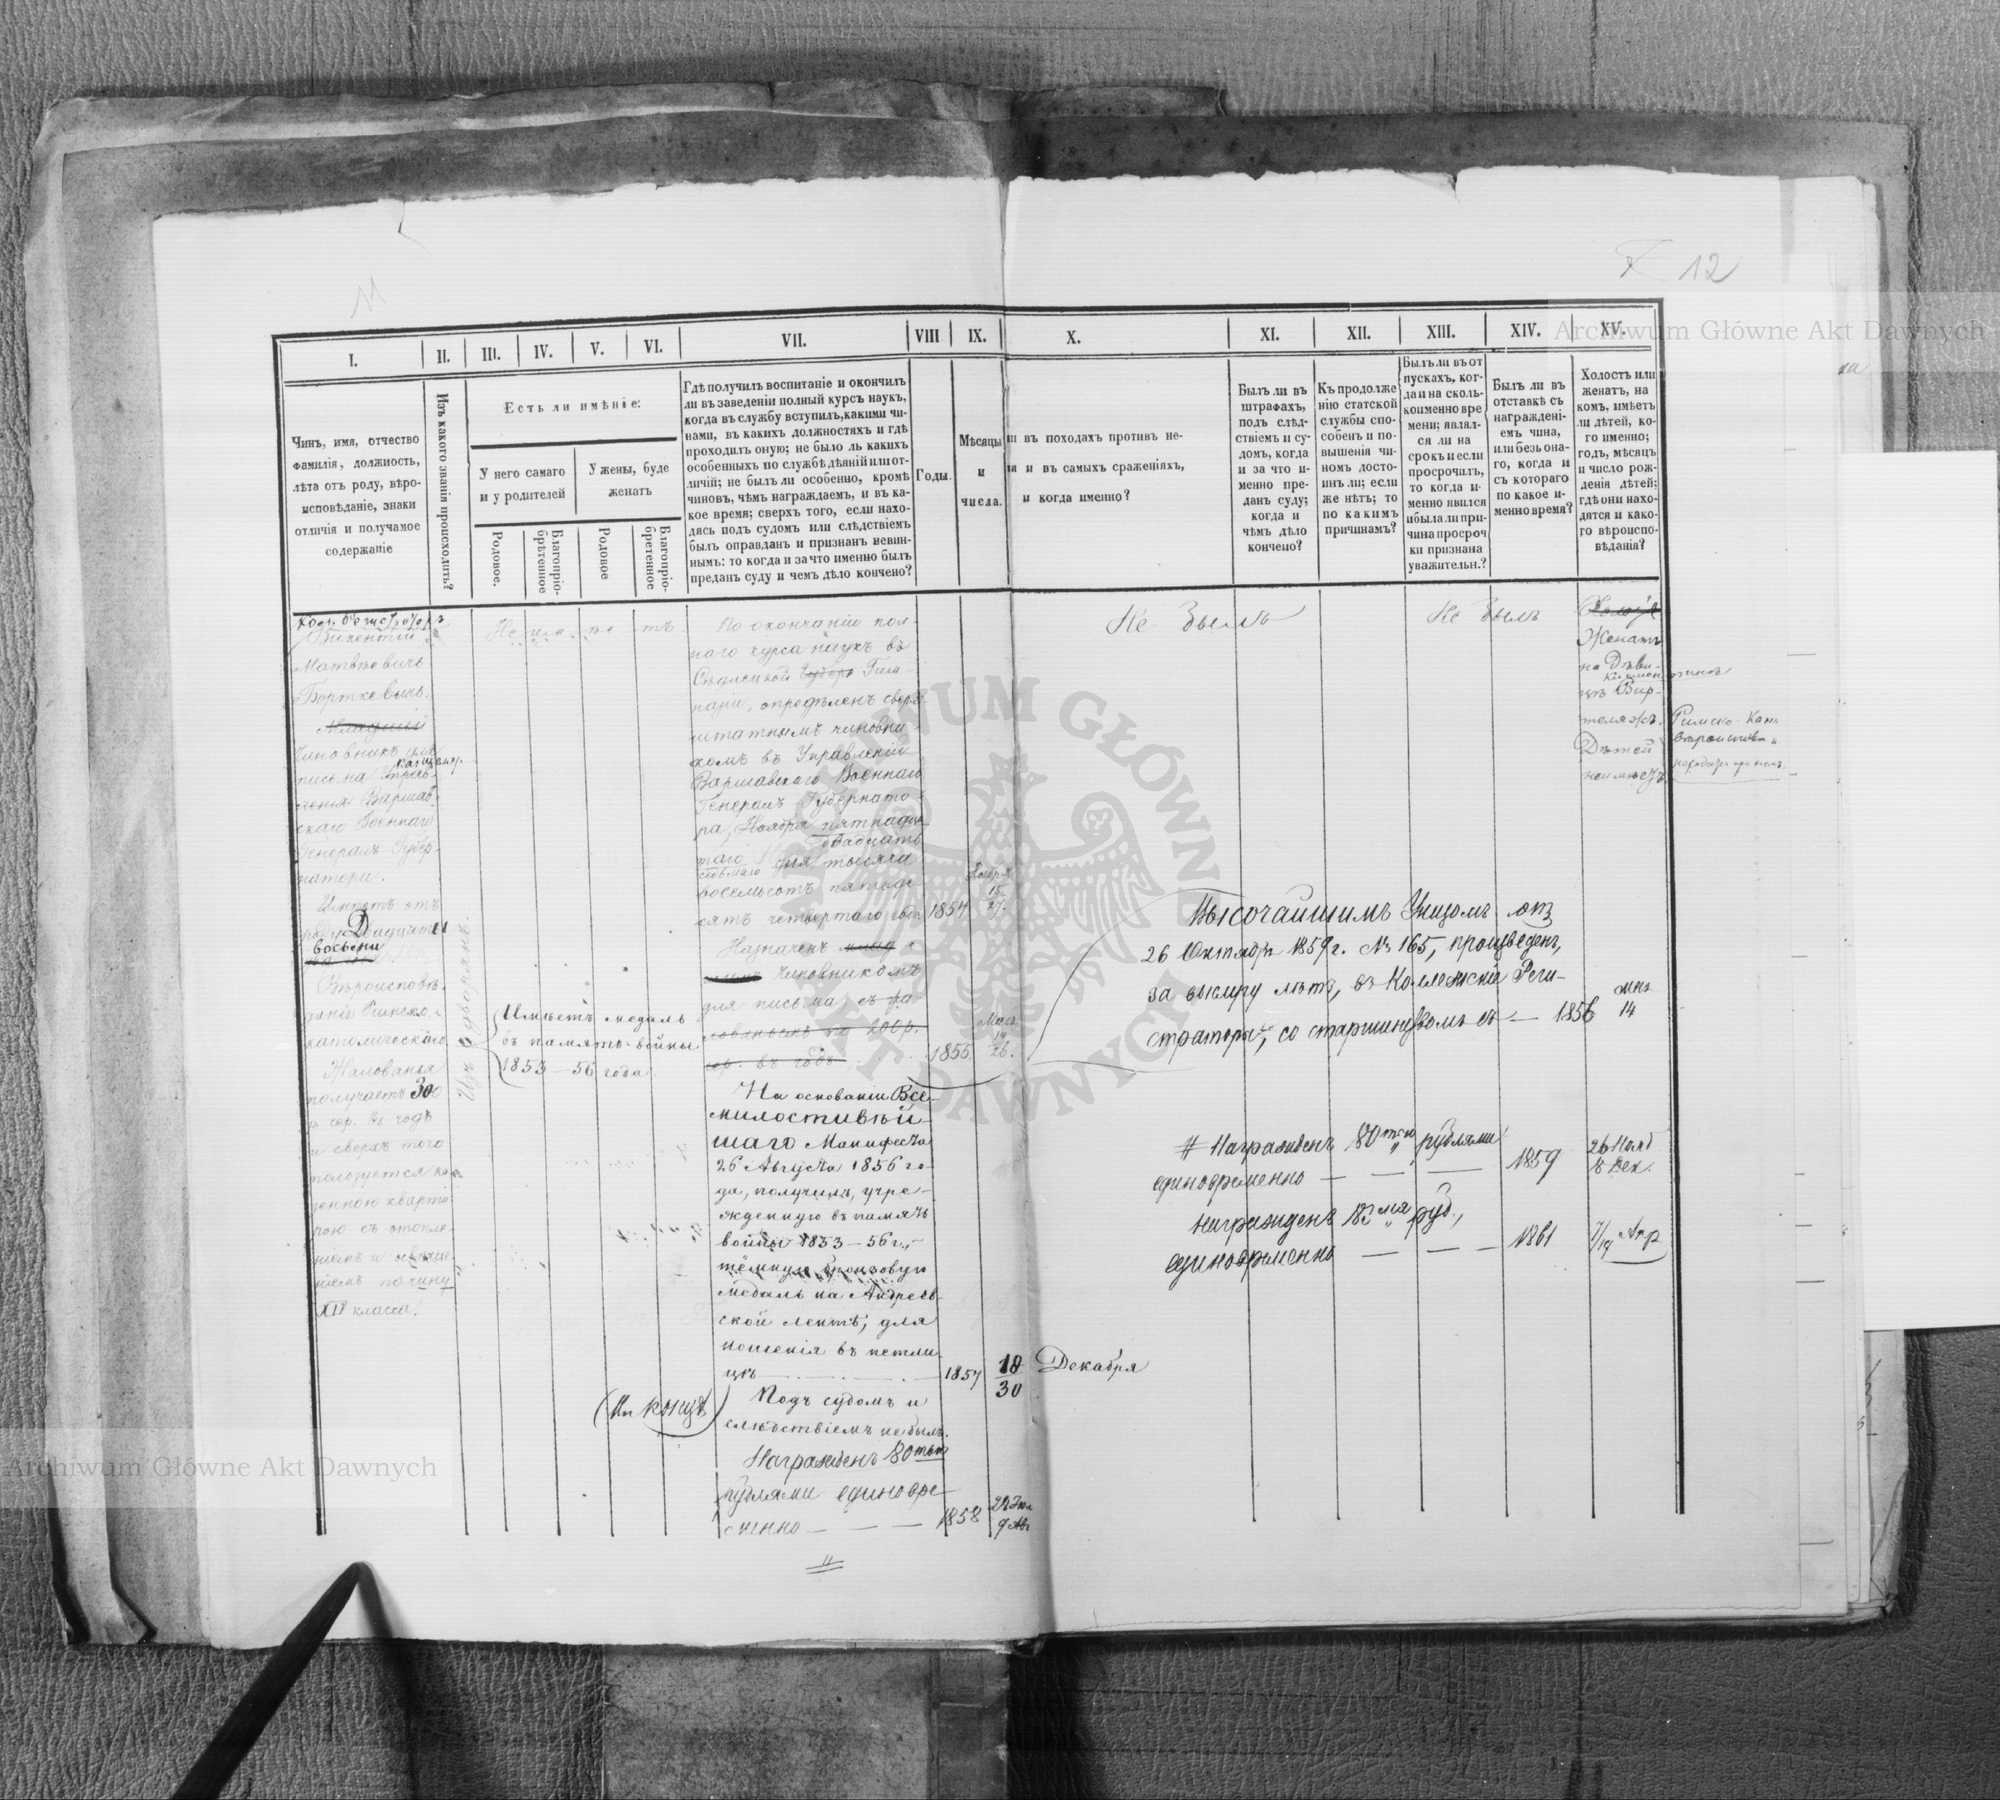 11
12
Archiwum Główne Akt Dawnych
I.
II.
III.
IV.
V.
VI.
VII.
VIII
IX.
X.
XI.
XII.
XIII.
XIV.
XV.
Чинъ, имя, отчество
фамилія, должность,
лѣта отъ роду, вѣро-
исповѣданіе, знаки
отличія и получамое
содержаніе
Изъ какого званія происходитъ?
Есть ли имѣніе:
У него самаго
и у родителей
У жены, буде
женатъ
Родовое.
Благопріо-
брѣтенное
Родовое
Благопріо-
бретенное
Гдѣ получилъ воспитаніе и окончилъ
ли въ заведеніи полный курсъ наукъ,
когда въ службу вступилъ, какими чи-
нами, въ какихъ должностяхъ и гдѣ
проходилъ оную; не было ль какихъ
особенныхъ по службѣ дѣяній или от-
личій; не былъ ли особенно, кромѣ
чиновъ, чѣмъ награждаемъ, и въ ка-
кое время; сверхъ того, если нахо-
дясь подъ судомъ или слѣдствіемъ
былъ оправданъ и признанъ невин-
нымъ: то когда и за что именно былъ
преданъ суду и чемъ дѣло кончено?
Годы.
Мѣсяцы
и
числа.
ли въ походахъ противъ не-
ля и въ самыхъ сраженіяхъ,
и когда именно?
Былъ ли въ
штрафахъ,
подъ слѣд-
ствіемъ и су-
домъ, когда
и за что и-
менно пре-
данъ суду;
когда и
чѣмъ дѣло
кончено?
Къ продолже
нію статской
службы спо-
собенъ и по-
вышенія чи-
номъ досто-
инъ ли; если
же нѣтъ; то
по какимъ
причинамъ?
Былъ ли въ от
пускахъ, ког-
да и на сколь-
ко именно вре
мени; являл-
ся ли на
срокъ и если
просрочилъ,
то когда и-
менно явился
и была ли при-
чина просроч
ки признана
уважительн.?
Былъ ли въ
отставкѣ съ
награжденi-
емъ чина,
или безъ она-
го, когда и
съ котораго
по какое и-
менно время?
Холостъ или
женатъ, на
комъ, имѣетъ
ли дѣтей, ко-
го именно;
годъ, мѣсяцъ
и число рож-
денія дѣтей;
гдѣ они нахо-
дятся и како-
го вѣроиспо-
вѣданія?
Кол. Регистраторъ
Викентій
Матвѣевичъ
Борткевичъ.
Младшій
Чиновникъ для
письма Канцеляр.
Управ-
ленія Варшав-
скаго Военнаго
Генералъ-Губер-
натора.
Имѣетъ отъ
роду Двадцать
восемь
Вѣроисповѣ-
данія Римско-
католическаго
Жалованья
получаетъ 300
р. сер. въ годъ
и сверхъ того
пользуется ка-
зенною кварти-
рою съ отопле-
ніемъ и освѣще-
ніемъ по чину
XIV класса.
Изъ дворянъ.
Не имѣетъ
Имѣетъ медаль
въ память войны
1853–56 года
По окончаніи пол-
наго курса наукъ въ
Гим-
назіи, опредѣленъ сверх-
штатнымъ чиновни-
комъ въ Управленіи
Варшавскаго Военнаго
Генералъ-Губернато-
ра, Ноября пятнадца-
таго двадцать
седьмаго дня тысяча
восемьсотъ пятьде-
сятъ четвертаго года 1854 Ноября 15/27.
Назначенъ млад-
шимъ чиновникомъ
для письма съ жа-
лованьемъ по 200 р.
сер. въ годъ 1856. Мая 14/26.
На основаніи Все-
милостивѣй-
шаго Манифеста
26 Августа 1856 го-
да, получилъ, учре-
жденную въ память
войны 1853–56 г.,
тёмную бронзовую
медаль на Андреев-
ской лентѣ, для
ношенія въ петли-
цѣ 1857 18/30 Декабря
Подъ судомъ и
слѣдствіемъ не былъ.
(На концѣ)
Награжденъ 80тью
рублями единовре-
менно — — — 1858
Не былъ
Не былъ
Высочайшимъ Указомъ отъ
26 Октября 1859 г. № 165, произведенъ,
за выслугу лѣтъ, въ Коллежскіе Реги-
страторы, со старшинствомъ съ — 1856 Мая 14
# Награжденъ 80тью рублями
единовременно — — — 1859 26 Нояб 8 Дек.
Награжденъ руб.,
единовременно — — — 1861 7/19 Апр
Холостъ
Женатъ
на Дѣви-
цѣ
Дѣтей
не имѣетъ
Римско-Кат.
вѣроисповѣд.
находится при немъ.
Archiwum Główne Akt Dawnych
ARCHIWUM GŁÓWNE AKT DAWNYCH